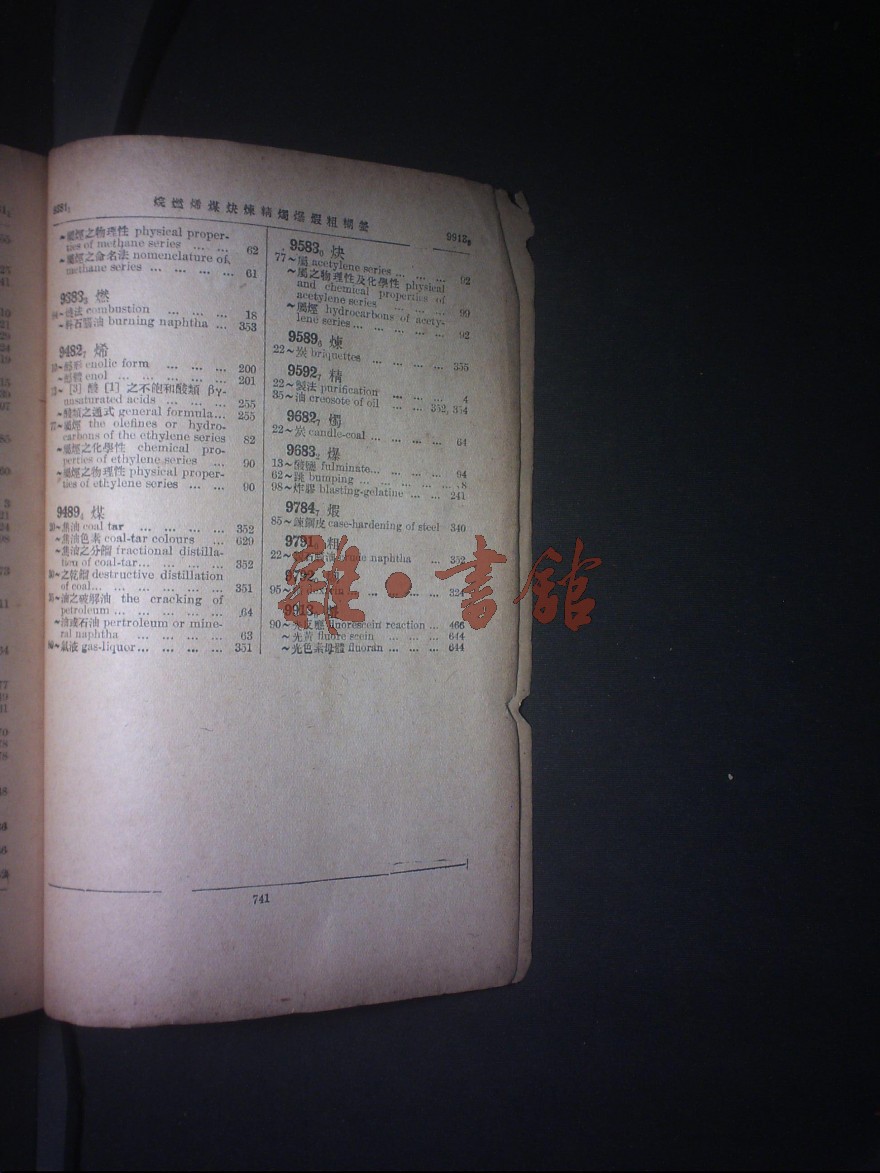 9281₁ 烷燃烯煤炔煉精燭爆煆粗糊螢 9913₉
~屬烴之物理性 physical proper-
ties of methane series ... ... 62
~屬烴之命名法 nomenclature of
methane series ... ... ... ... 61
9383₃ 燃
~燒法 combustion ... ... ... 18
~料石腦油 burning naphtha ... 353
9482₇ 烯
enolic form ... ... ... 200
enol ... ... ... ... ... ... 201
~[3] 酸 [1] 之不飽和酸類 βγ-
unsaturated acids ... ... ... 255
~酸類之通式 general formula... 255
77~屬烴 the olefines or hydro-
carbons of the ethylene series 82
~屬烴之化學性 chemical pro-
perties of ethylene series ... ... 90
~屬烴之物理性 physical proper-
ties of ethylene series ... ... 90
9489₄ 煤
~焦油 coal tar ... ... ... ... 352
~焦油色素 coal-tar colours ... 629
~焦油之分餾 fractional distilla-
tion of coal-tar... ... ... ... 352
~之乾餾 destructive distillation
of coal... ... ... ... ... ... 351
the cracking of
petroleum ... ... ... ... ... 64
~油或石油 pertroleum or mine-
ral naphtha ... ... ... ... 63
~氣液 gas-liquor... ... ... ... 351
9583₀ 炔
77~屬 acetylene series ... ... ... 92
~屬之物理性及化學性 physical
and chemical properties of
acetylene series ... ... ... 99
~屬烴 hydrocarbons of acety-
lene series ... ... ... ... ... 92
9589₆ 煉
22~炭 briquettes ... ... ... ... 355
9592₇ 精
22~製法 purification ... ... ... 4
35~油 creosote of oil ... ... 352, 354
9682₇ 燭
22~炭 candle-coal ... ... ... ... 64
9683₂ 爆
13~酸鹽 fulminate... ... ... ... 94
62~跳 bumping ... ... ... ... ... 8
98~炸膠 blasting-gelatine ... ... 241
9784₇ 煆
85~鍊鋼皮 case-hardening of steel 340
9791 粗
22~ naphtha ... 352
9792
95~ ... ... ... ... 324
9913
90~光反應 fluorescein reaction ... 466
~光黃 fluorescein ... ... ... 644
~光色素母體 fluoran ... ... ... 644
雜·書館
741